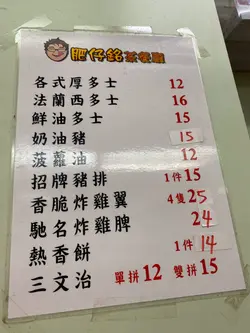 肥仔銘茶餐廳
各式厚多士 12
法蘭西多士 16
鮮油多士 15
奶油豬 15
菠蘿油 12
招牌豬排 1件15
香脆炸雞翼 4隻25
馳名炸雞脾 24
熱香餅 1件14
三文治 單拼12 雙拼15